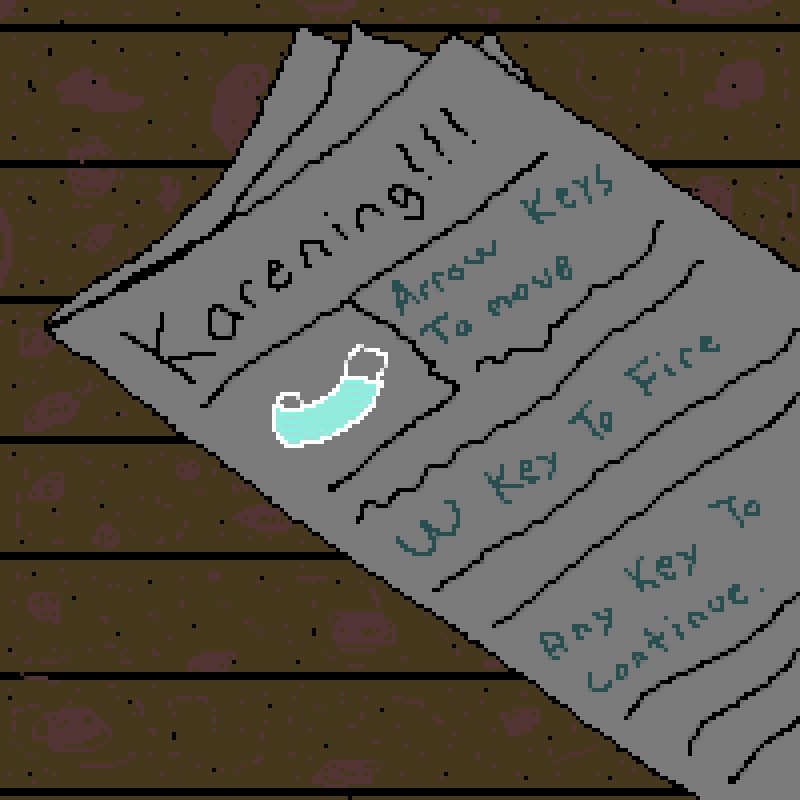 Karening!!!
Arrow Keys
To move
W Key To Fire
Any Key To
Continue.